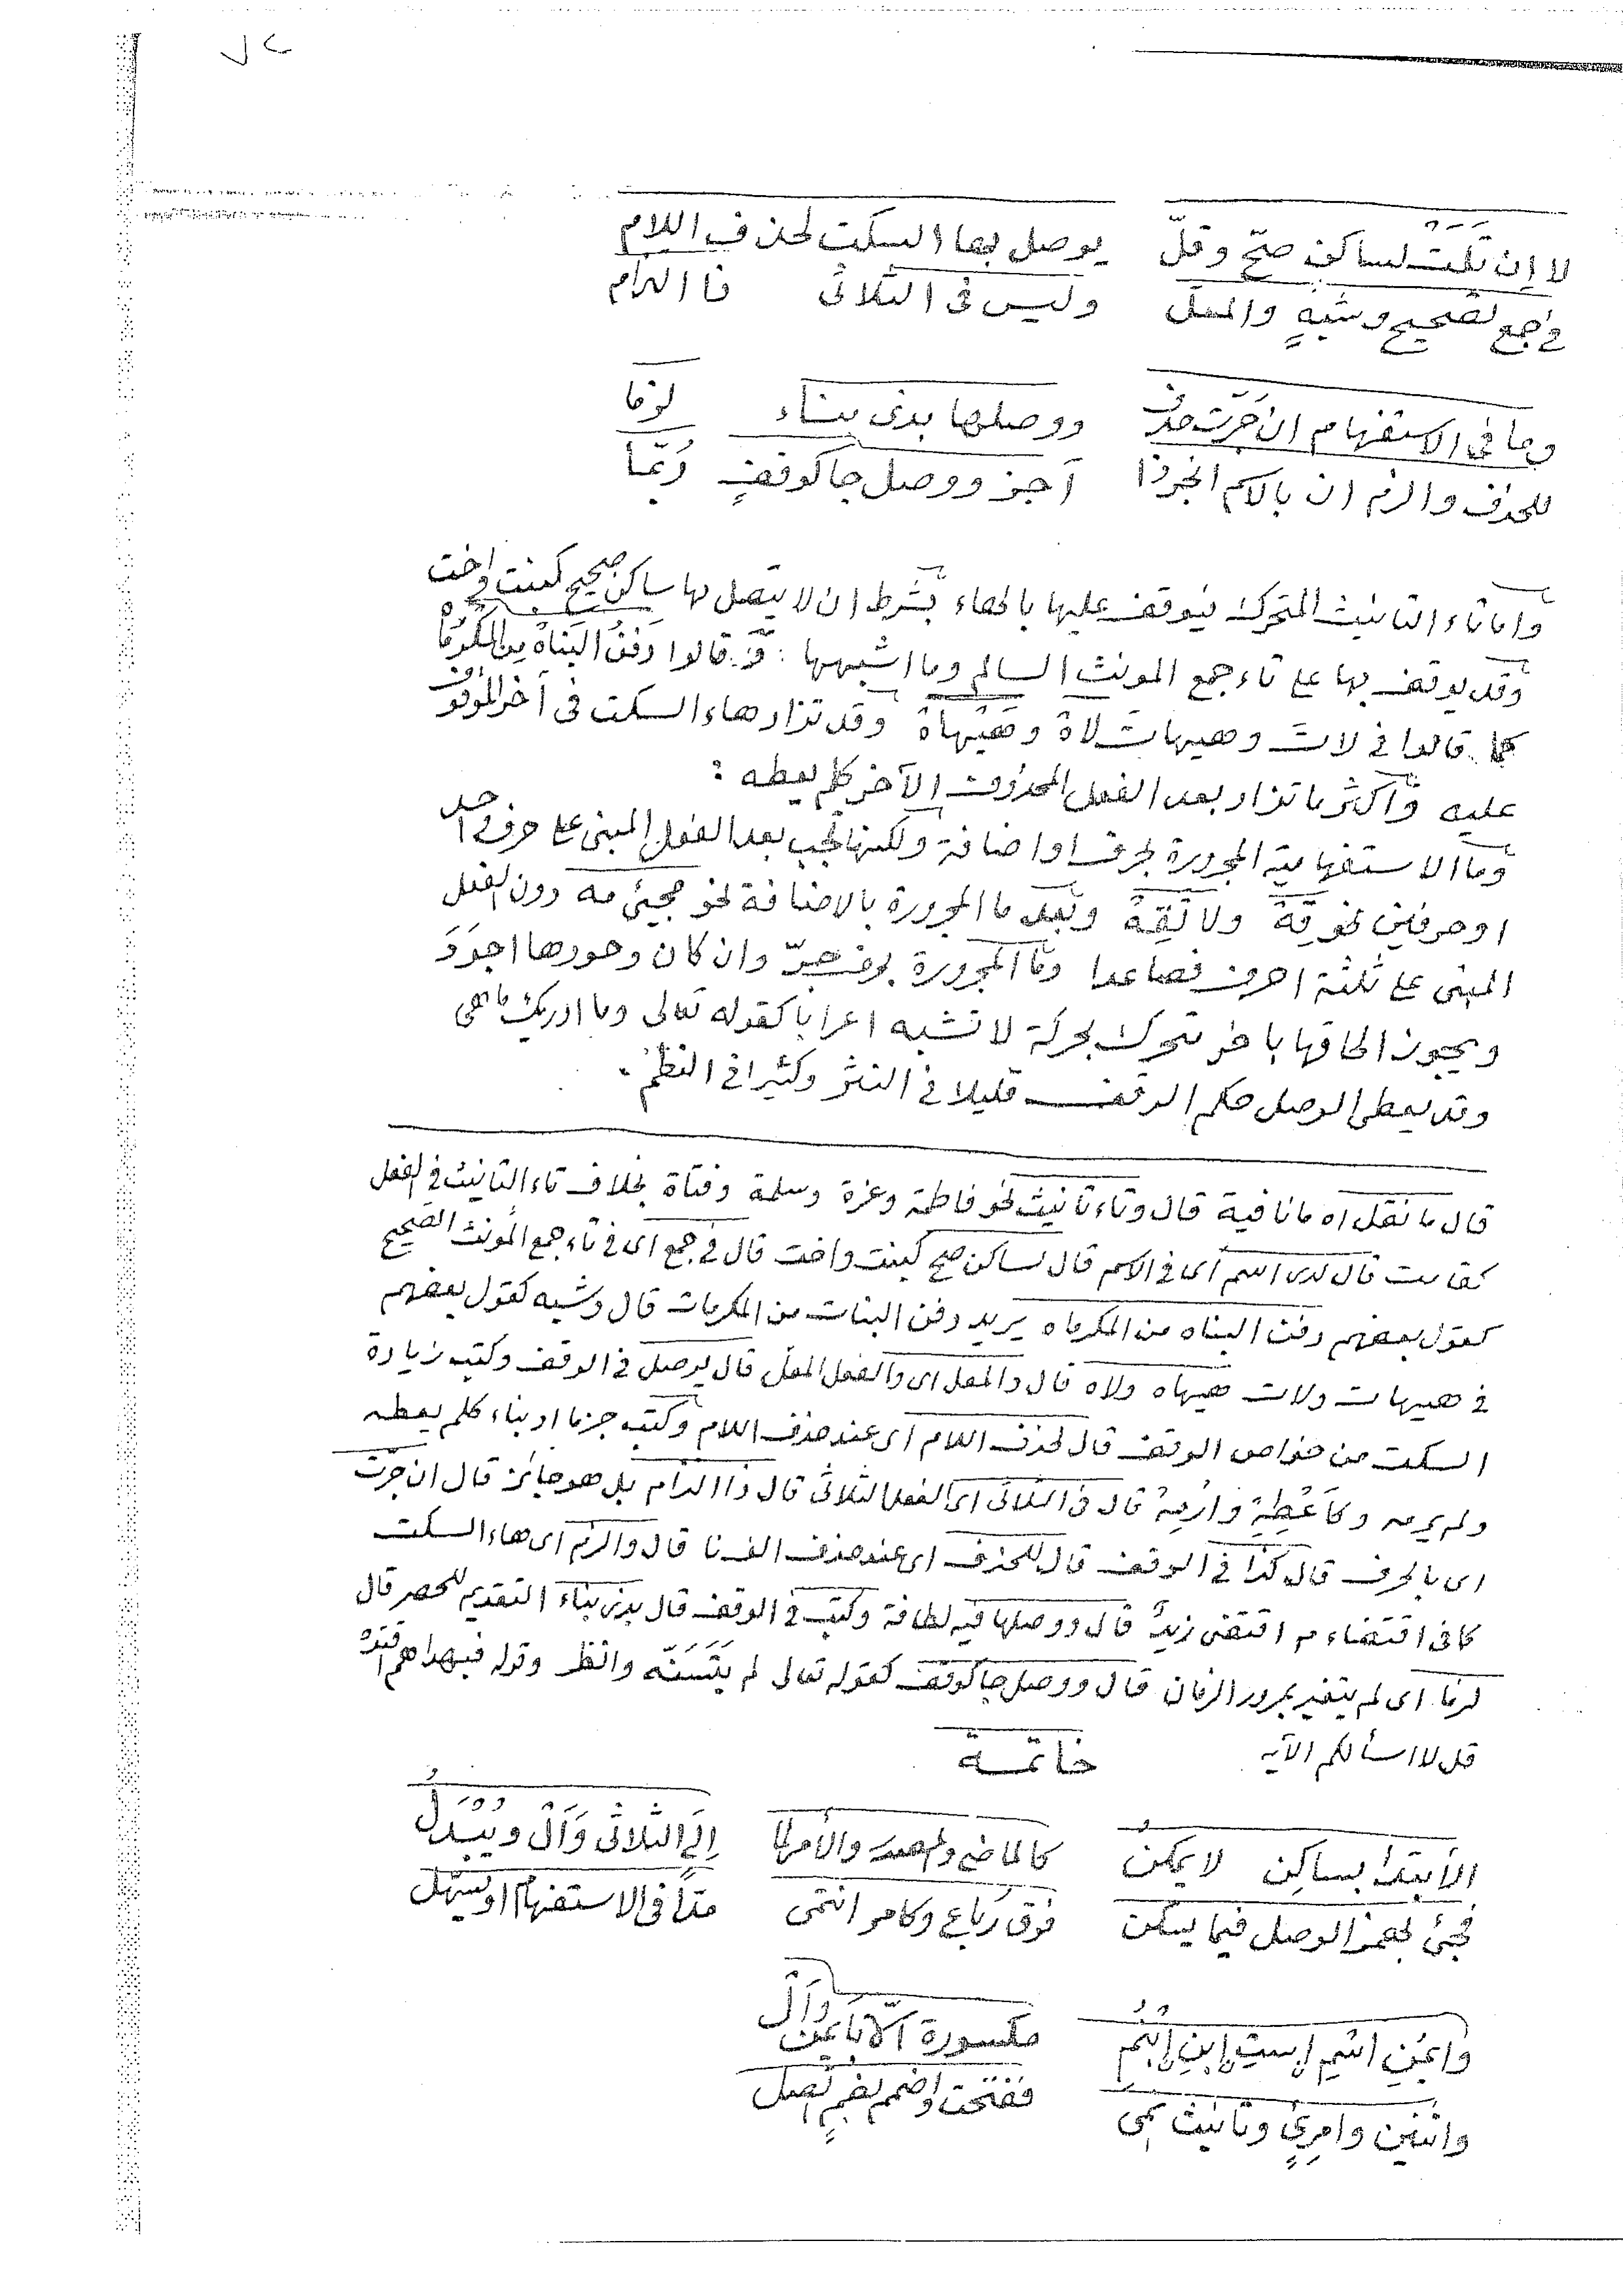 لا ان تلت لساكن صحّ وقلّ يوصل بها السكت لحذف اللام
فى جمع تصحيح وشبهٍ والمعل وليس فى الثلاثى ذا التزام
وما فى الاستفهام ان جرّت حذف ووصلها بذى بناء لزما
للحذف والزم ان بالاسم انجر ذا أجز ووصل جا كوقفٍ ربّما
واما تاء التانيث المتحرك فيوقف عليها بالهاء بشرط ان لا يتصل بها ساكن صحيح كبنت واخت
وقد يوقف بها على تاء جمع المونث السالم وما اشبهها قالوا دفنُ البَناهْ من المكرماهْ
كما قالوا فى لات وهيهات لاهْ وهيهاهْ وقد تزاد هاء السكت فى آخر الموقوف
عليه واكثر ما تزاد بعد الفعل المحذوف الآخر كلم يعطه :
وما الاستفهامية المجرورة بحرف او اضافة ولكنها تجب بعد الفعل المبنى على حرف احد
او حرفين نحو قهْ ولا تقهْ وبعد ما المجرورة بالاضافة نحو مجيئ مه دون الفعل
المبنى على ثلثة احرف فصاعدا وما المجرورة بحرف جرّ وان كان وجودها اجود
ويجوز الحاقها باخر متحرك بحركة لا تشبه اعرابا كقوله تعالى وما ادريك ما هى
وقد يعطى الوصل حكم الوقف قليلا فى النثر وكثيرا فى النظم .
قال ما نقل اه ما نافية قال وتاء تانيث نحو فاطمة وعزة وسلمة وفتاة بخلاف تاء التانيث فى الفعل
كقامت قال لدى اسم اى فى الاسم قال لساكن صح كبنت واخت قال فى جمع اى فى تاء جمع المونث الصحيح
كقول بعضهم دفن البناه من المكرماه يريد دفن البنات من المكرمات قال وشبه كقول بعضهم
فى هيهات ولات هيهاه ولاه قال والمعل اى والفعل المعلّ قال يوصل فى الوقف وكتب زيادة
السكت من خواص الوقف قال لحذف اللام اى عند حذف اللام وكتب جزما او بناء كلم يعطه
ولم يرمه وكأعطِهْ وارمِهْ قال فى الثلاثى اى الفعل الثلاثى قال ذا التزام بل هو جائز قال ان جرّت
اى بالحرف قال كذا فى الوقف قال للحذف اى عند حذف الف ما قال والزم اى هاء السكت
كما فى اقتضاء م اقتضى زيدٌ قال ووصلها فيه لطافة وكتب فى الوقف قال بذى بناء التقديم للحصر قال
لزما اى لم يتغير بمرور الزمان قال ووصل جا كوقف كقوله تعالى لم يتسنّه وانظر وقوله فبهداهم اقتده
قل لا اسألكم الآيه
خاتمة
الأبتدأ بساكن لا يمكن كالماضى والمصدر والأمر لما الى الثلاثى وأل ويبدل
فجئ بهمز الوصل فيما يسكن فوق رُباعٍ وكامر انتمى مدًّا فى الاستفهام او يسهل
وايمن اسم است ابن ابنم مكسورة الّا بايمن وأل
واثنين وامرئٍ وتانيث نمى ففتحت واضمم بضمٍ تصل